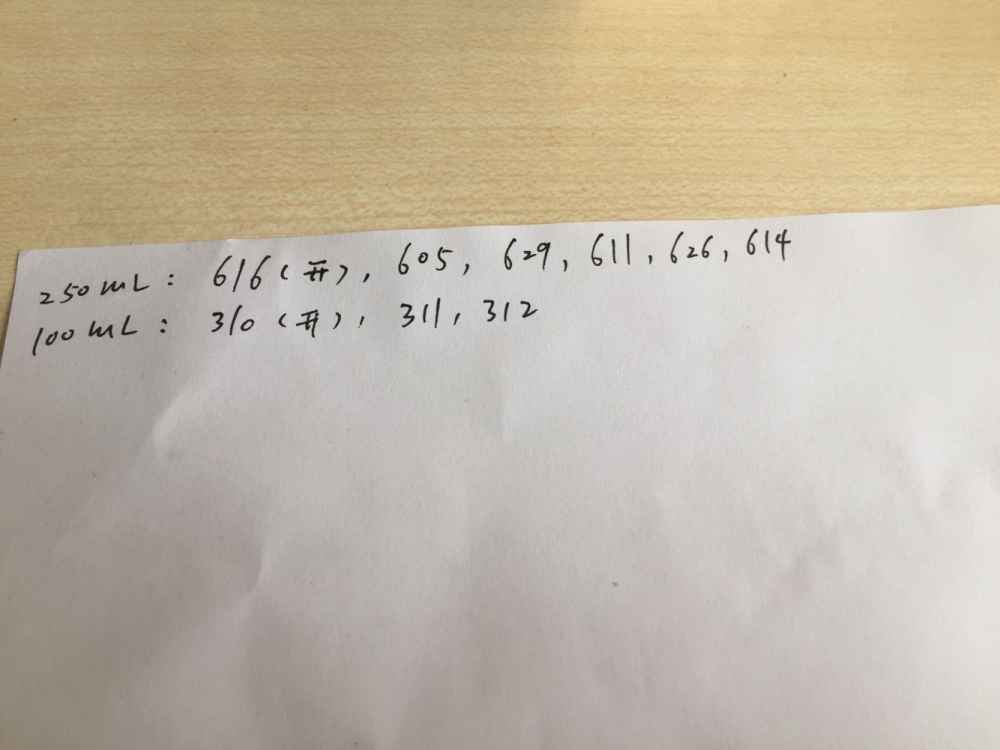 250mL: 616(开), 605, 629, 611, 626, 614
100mL: 310(开), 311, 312